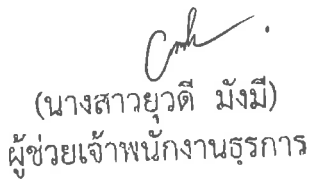 (นางสาวยุวดี มังมี)
ผู้ช่วยเจ้าพนักงานธุรการ